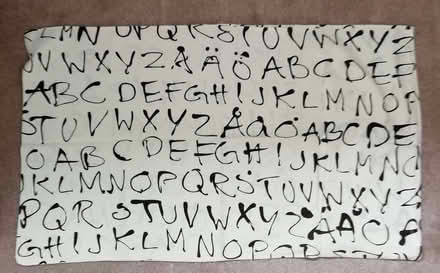 LMN OPQRSTUVWXYZ
UVWXYZÅÄÖ ABCDEF
ABC DEFGHIJKLMNOP
STUVWXYZÅäÖABCDE
OABCDEFGHIJKLMN
JKLMNOPQRSTUVWXYZ
PQRSTUVWXYZÅÄÖA
GHIJKLMNOPQRST